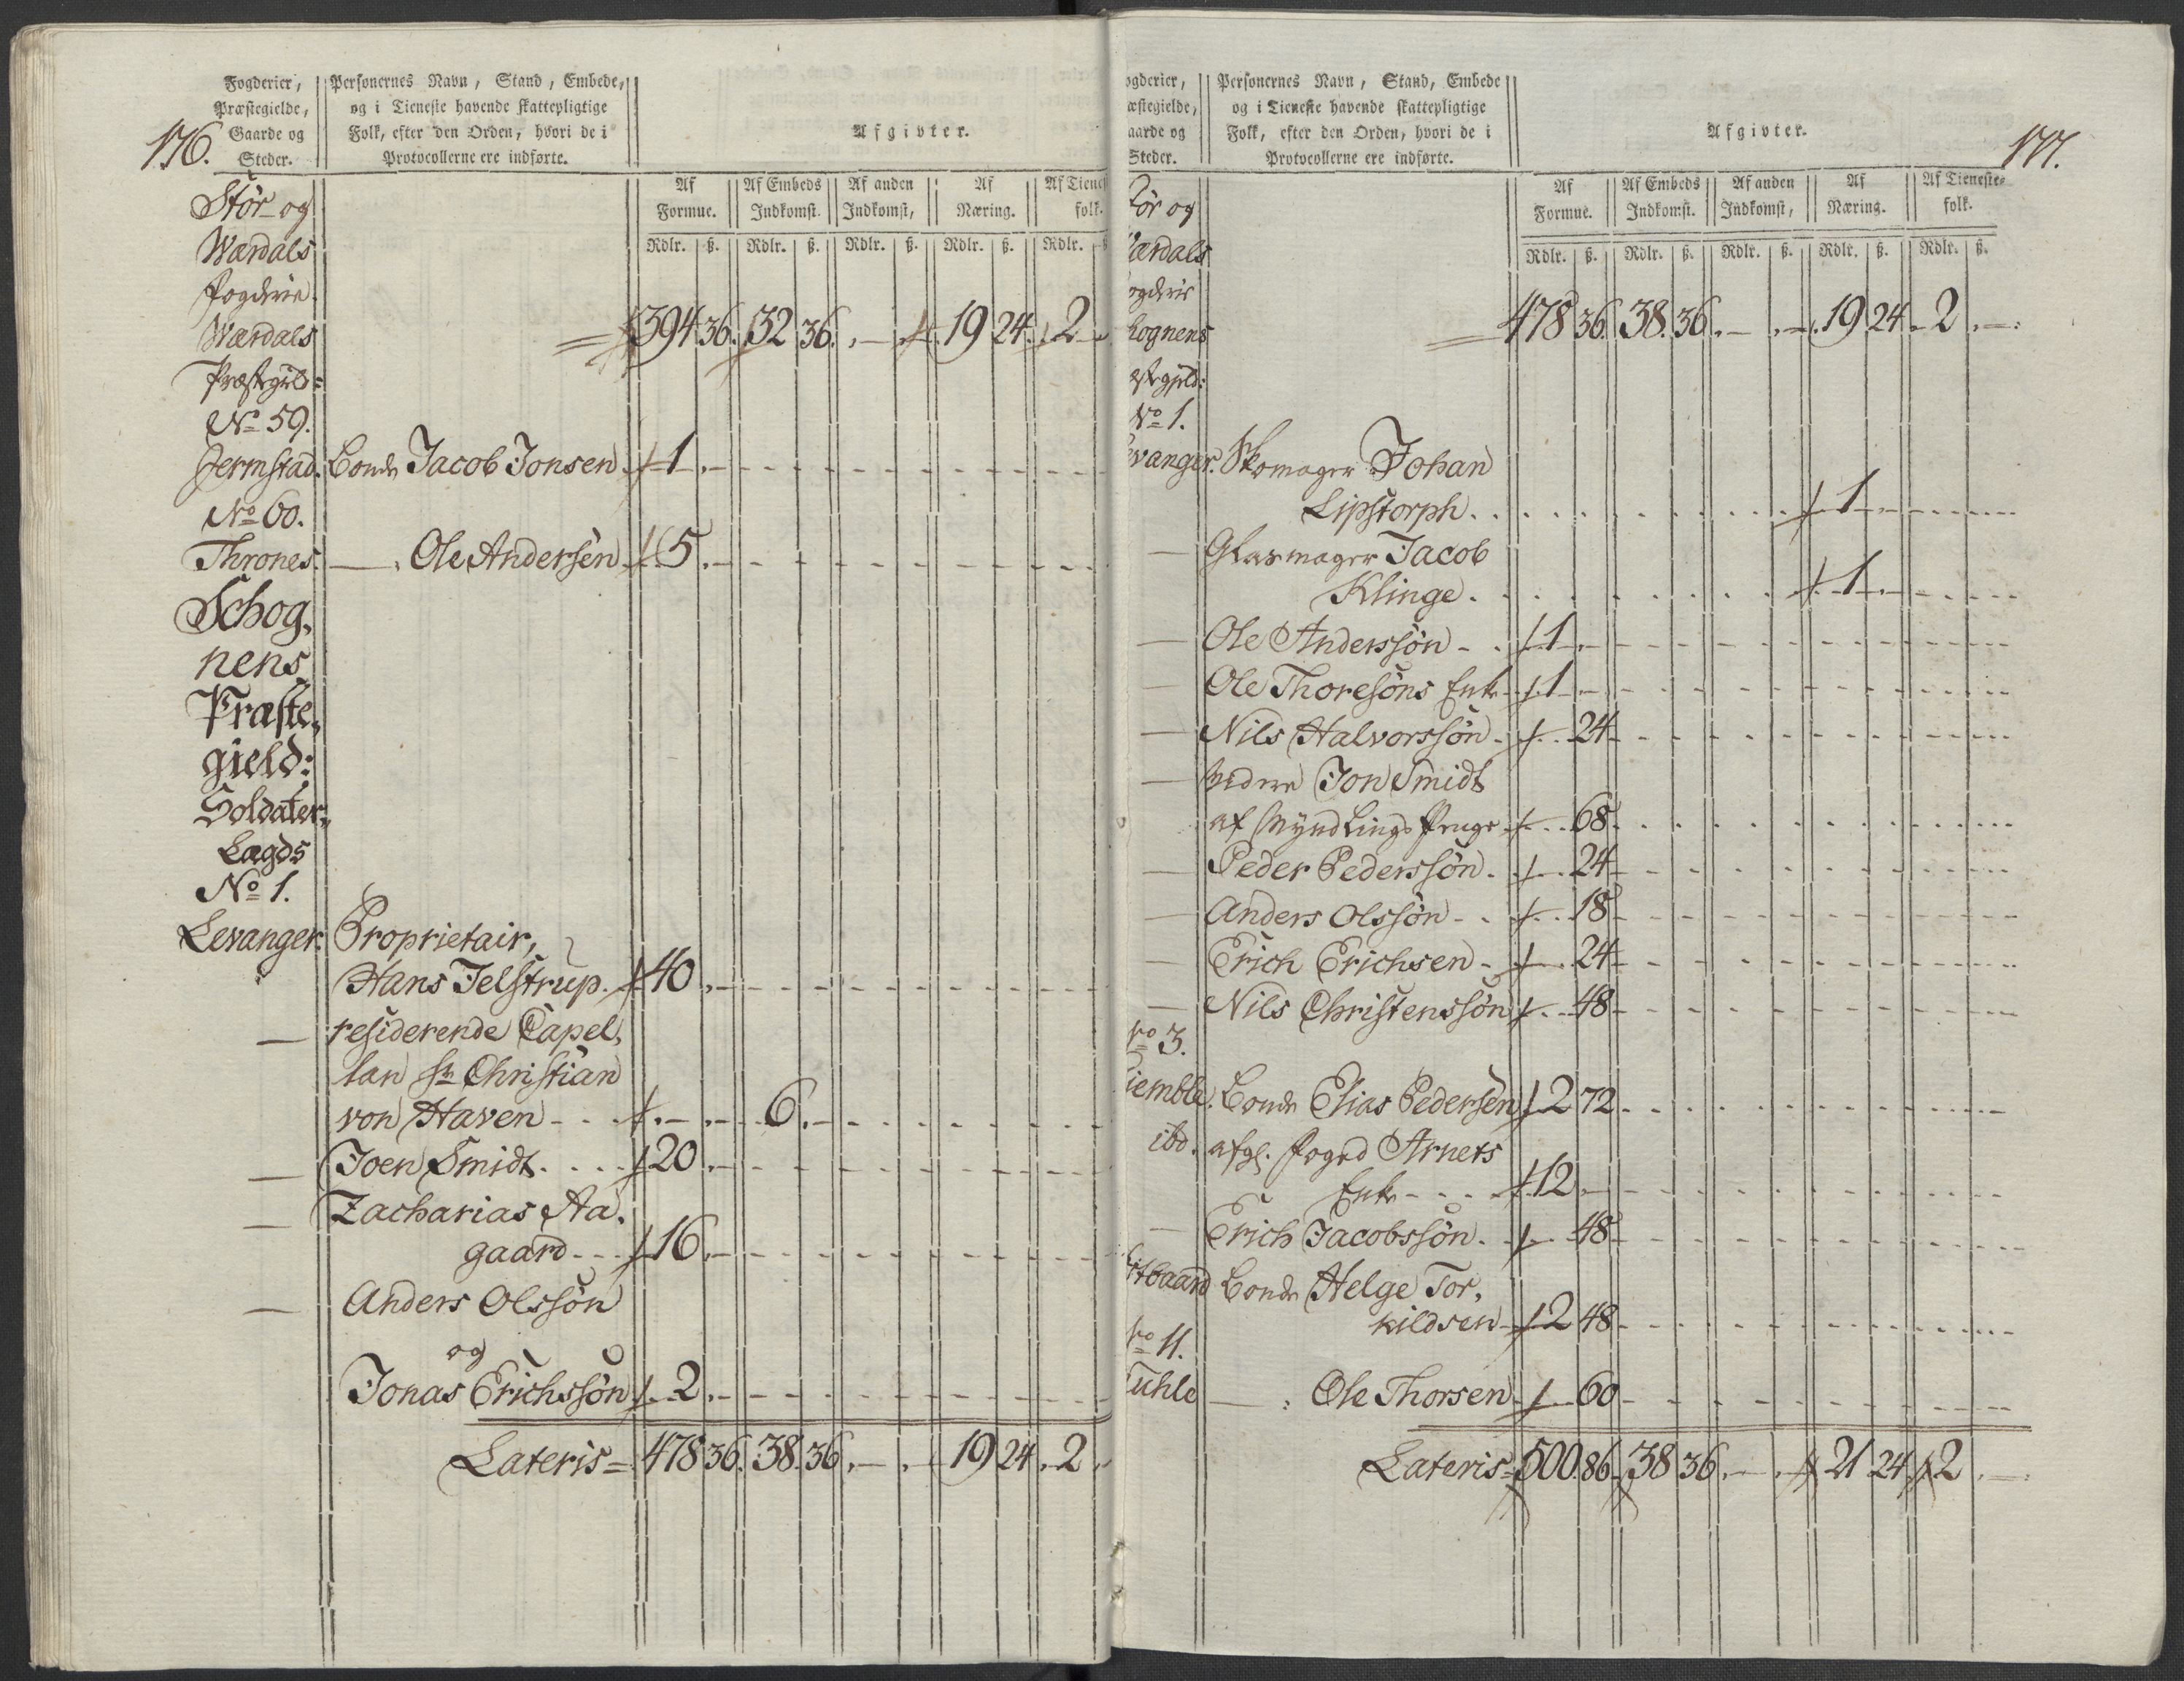 176.
Fogderier,
Præstegielde,
Gaarde og
Steder.
Personernes Navn, Stand, Embede,
og i Tieneste havende skattepligtige
Folk, efter den Orden, hvori de i
Protocollerne ere indførte.
Afgivter.
Af Formue. Af Embeds Indkomst. Af anden Indkomst, Af Næring. Af Tienes folk.
Rdlr. ß. Rdlr. ß. Rdlr. ß. Rdlr. ß. Rdlr.
Stör og
Wærdals
Fogderie.
Wærdals 394 36. 32 36. . — . 19 24. 2
Præstegield:
No 59.
Jermstad. Bonde Jacob Jonsen 1 . —
No 60.
Thrones. — . Ole Andersen 5 . —
Schog,
nens
Præste,
gield:
Soldater,
Lægds
No 1.
Levanger. Proprietair,
Hans Jelstrup. 40 . —
— residerende Capel,
lan Hr Christian
von Haven - - . — . — 6. —
— Joen Smidt. . . . 20 . —
— Zacharias Aa,
gaard - - - 16. —
— Anders Olssön
og
Jonas Erichssön 2. —
Lateris = 478 36. 38. 36. . — . 19 24. 2
177.
ogderier,
æstegielde,
aarde og
Steder.
Personernes Navn, Stand, Embede
og i Tieneste havende skattepligtige
Folk, efter den Orden, hvori de i
Protocollerne ere indførte.
Afgivter.
Af Formue. Af Embeds Indkomst. Af anden Indkomst, Af Næring. Af Tieneste- folk.
Rdlr. ß. Rdlr. ß. Rdlr. ß. Rdlr. ß. Rdlr. ß.
tör og
ærdals
ogderie
hognens 478 36. 38. 36. — . — . 19 24. 2 . —
estegield:
No 1.
evanger. Skomager Johan
Lipstorph. . . 1. —
— Glasmager Jacob
Klinge. . . 1. —
— Ole Anderssön - . 1. —
— Ole Thoresöns Enke 1. —
— Nils Halvorssön - 24
— Videre Jon Smidt
af Myndlings Penge 68.
— Peder Pederssön. 24
— Anders Olssön - . 18
— Erich Erichsen - 24
— Nils Christenssön 48
No 3.
iemble. Bonde Elias Pedersen 2 72.
ibd. afg. Foged Arnets
Enke - - - 12. —
— Erich Jacobssön. 48
tbaard Bonde Helge Tor,
kildsen 2 48
No 11.
Tuhle — . Ole Thorsen 60
Lateris = 500. 86. 38 36. — . 21 24. 2 . —